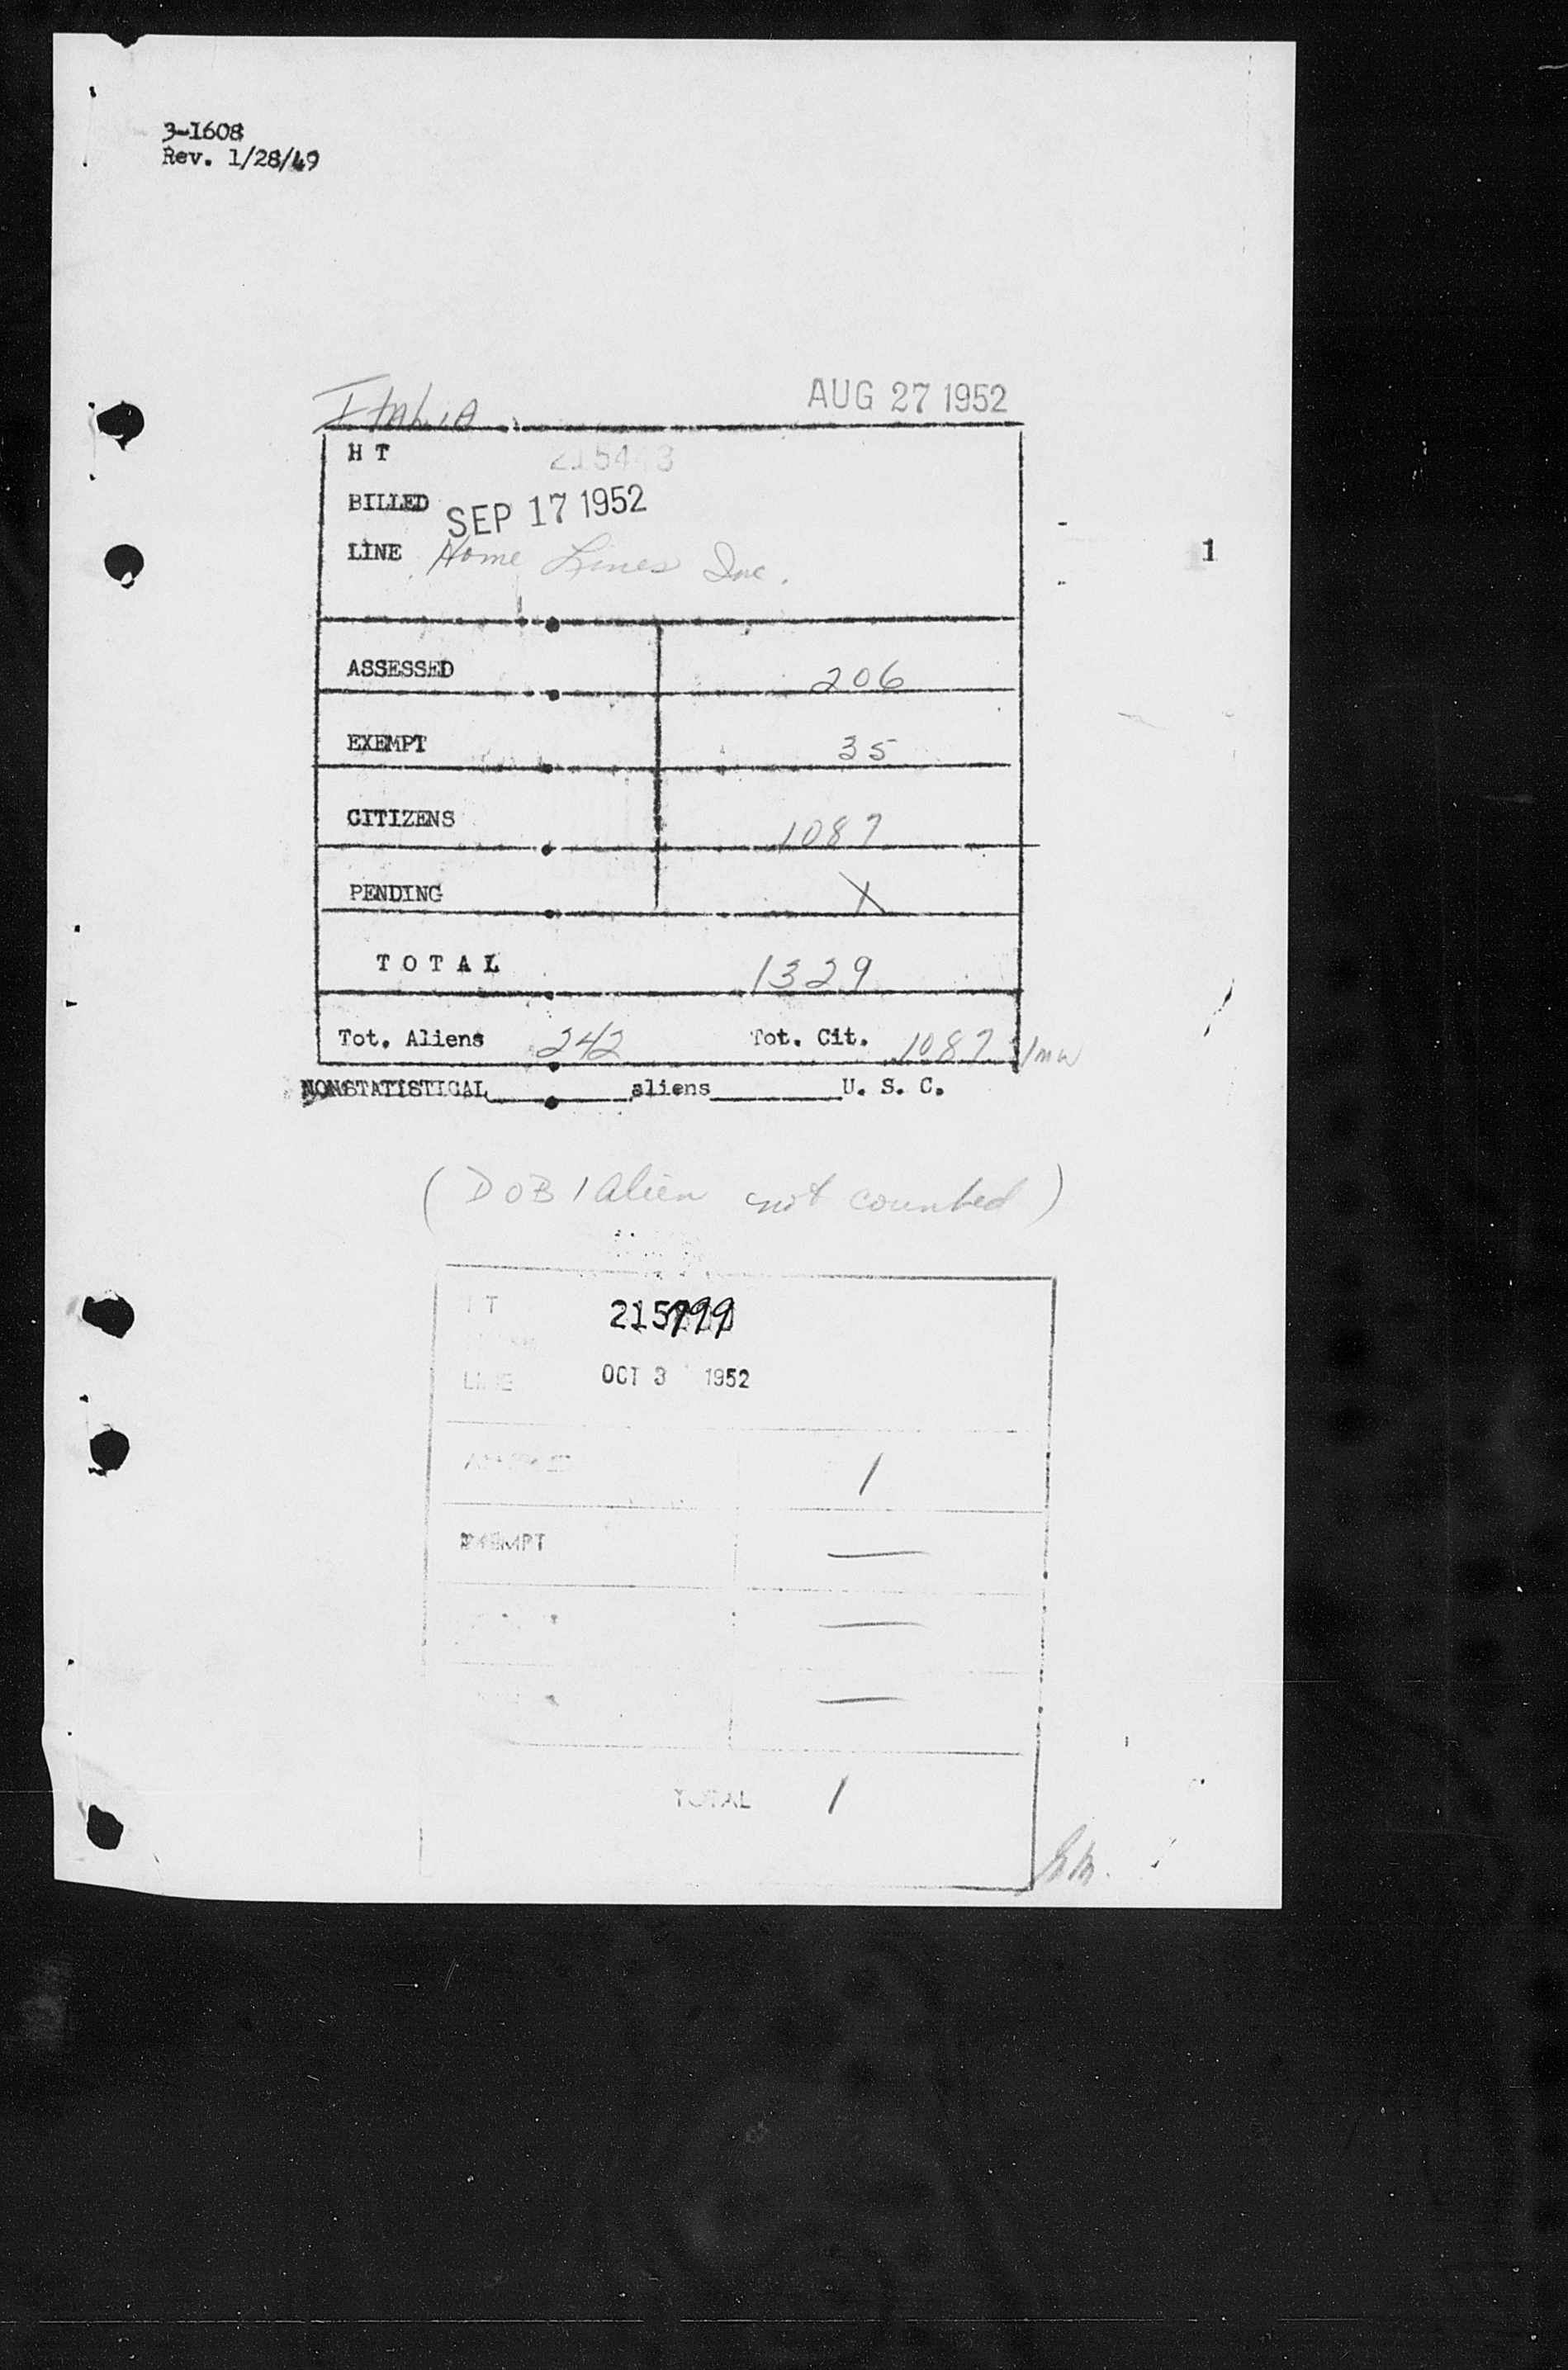 3-1608
Rev. 1/28/49
ITALIA AUG 27 1952
H T 2154 3
BILLED SEP 17 1952
LINE Home Lines Inc.
1
ASSESSED 206
EXEMPT 35
CITIZENS 1087
PENDING X
TOTAL 1329
Tot. Aliens 242 Tot. Cit. 1087
NONSTATISTICAL aliens U. S. C.
(DOB 1 alien not counted)
OCT 3 1952
LINE
1
EXEMPT —
—
—
TOTAL 1